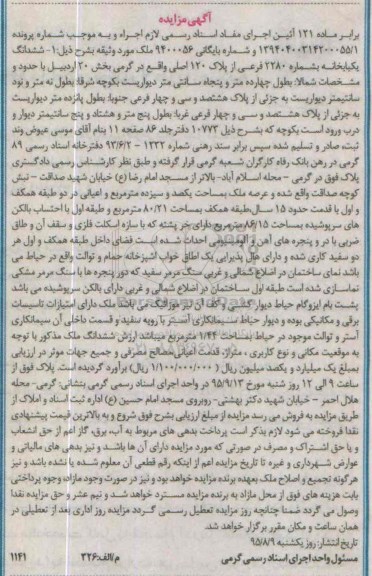 آگهی مزایده
برابر ماده ۱۲۱ آئین اجرای مفاد اسناد رسمی لازم اجراء و به موجب شماره پرونده
۱۳۹۴۰۴۰۰۳۱۴۲۰۰۰۵۵/۱ و شماره بایگانی ۹۴۰۰۰۵۶ ملک مورد وثیقه بشرح ذیل:۱- ششدانگ
یکبابخانه بشماره ۲۲۸۰ فرعی از پلاک ۱۲۰ اصلی واقع در گرمی بخش ۲۰ اردبیل با حدود و
مشخصات شمالا: بطول چهارده متر و پنجاه سانتی متر دیواریست بکوچه شرقا: بطول نه متر و نود
سانتیمتر دیواریست به جزئی از پلاک هشتصد و سی و چهار فرعی جنوبا: بطول پانزده متر دیواریست
به جزئی از پلاک هشتصد و سی و چهار فرعی غربا: بطول پنج متر و هشتاد و پنج سانتیمتر دیوار و
درب ورود است بکوچه که بشرح ذیل ۱۰۷۷۳ دفتر جلد ۸۶ صفحه ۱۱ بنام آقای موسی عیوض وند
ثبت، صادر و تسلیم شده سپس برابر سند رهنی شماره ۱۲۳۲ - ۹۳/۶/۲ دفترخانه اسناد رسمی ۸۹
گرمی در رهن بانک رفاه کارگران شعبه گرمی قرار گرفته و طبق نظر کارشناس رسمی دادگستری
پلاک فوق در گرمی - محله اسلام آباد- بالاتر از مسجد امام رضا (ع) خیابان شهید صداقت - نبش
کوچه صداقت واقع شده و عرصه ملک بمساحت یکصد و سیزده مترمربع و اعیانی در دو طبقه همکف
و اول با قدمت حدود ۱۵ سال،طبقه همکف بمساحت ۸۰/۲۱ مترمربع و طبقه اول با احتساب بالکن
های سرپوشیده بمساحت ۸۶/۱۵ مترمربع دارای خر پشته که با سازه اسکلت فلزی و سقف آن و طاق
ضربی با در و پنجره های آهن و آلومینیومی احداث شده است فضای داخل طبقه همکف و اول هر
دو سفید کاری شده و دارای هال پذیرایی یک اطاق خواب آشپزخانه حمام و توالت واقع در حیاط می
باشد نمای ساختمان در اضلاع شمالی و غربی سنگ مرمر سفید که دور پنجره ها با سنگ مرمر مشکی
نماسازی شده است طبقه اول ساختمان در اضلاع شمالی و غربی دارای بالکن سرپوشیده می باشد
پشت بام ایزوگام حیاط دیوار کشی و کف آن نیز موزائیک می باشد ملک دارای امتیازات تاسیسات
برقی و مکانیکی بوده و دیوار حیاط سیمانکاری آستر با رویه سفید و قسمت داخلی آن سیمانکاری
آستر و توالت موجود در حیاط بمساحت ۱/۴۴ مترمربع میباشد ارزش ششدانگ ملک مذکور با توجه
به موقعیت مکانی و نوع کاربری ، متراژ، قدمت اعیانی،مصالح مصرفی و جمیع جهات موثر در ارزیابی
بمبلغ یک میلیارد و یکصد میلیون ریال ( ۱/۱۰۰/۰۰۰/۰۰۰ ریال) برآورد گردیده است. پلاک فوق از
ساعت ۹ الی ۱۲ روز شنبه مورخ ۹۵/۹/۱۳ در واحد اجرای اسناد رسمی گرمی بنشانی: گرمی- محله
هلال احمر - خیابان شهید دکتر بهشتی- روبروی مسجد امام حسین (ع) اداره ثبت اسناد و املاک از
طریق مزایده به فروش می رسد مزایده از مبلغ ارزیابی بشرح فوق شروع و به بالاترین قیمت پیشنهادی
نقدا فروخته می شود لازم بذکر است پرداخت بدهی های مربوط به آب، برق، گاز اعم از حق انشعاب
و یا حق اشتراک و مصرف در صورتی که مورد مزایده دارای آن ها باشد و نیز بدهی های مالیاتی و
عوارض شهرداری و غیره تا تاریخ مزایده اعم از اینکه رقم قطعی آن معلوم شده یا نشده باشد و نیز
هرگونه تجمیع و اصلاح ملک بعهده برنده مزایده خواهد بود و نیز در صورت وجود مازاد، وجوه پرداختی
بابت هزینه های فوق از محل مازاد به برنده مزایده مسترد خواهد شد و نیم عشر و حق مزایده نقدا
وصول می گردد ضمنا چنانچه روز مزایده تعطیل رسمی گردد مزایده روز اداری بعد از تعطیلی در
همان ساعت و مکان مقرر برگزار خواهد شد.
تاریخ انتشار: روز یکشنبه ۹۵/۸/۹
مسئول واحد اجرای اسناد رسمی گرمی م/الف:۳۲۶ ۱۱۴۱